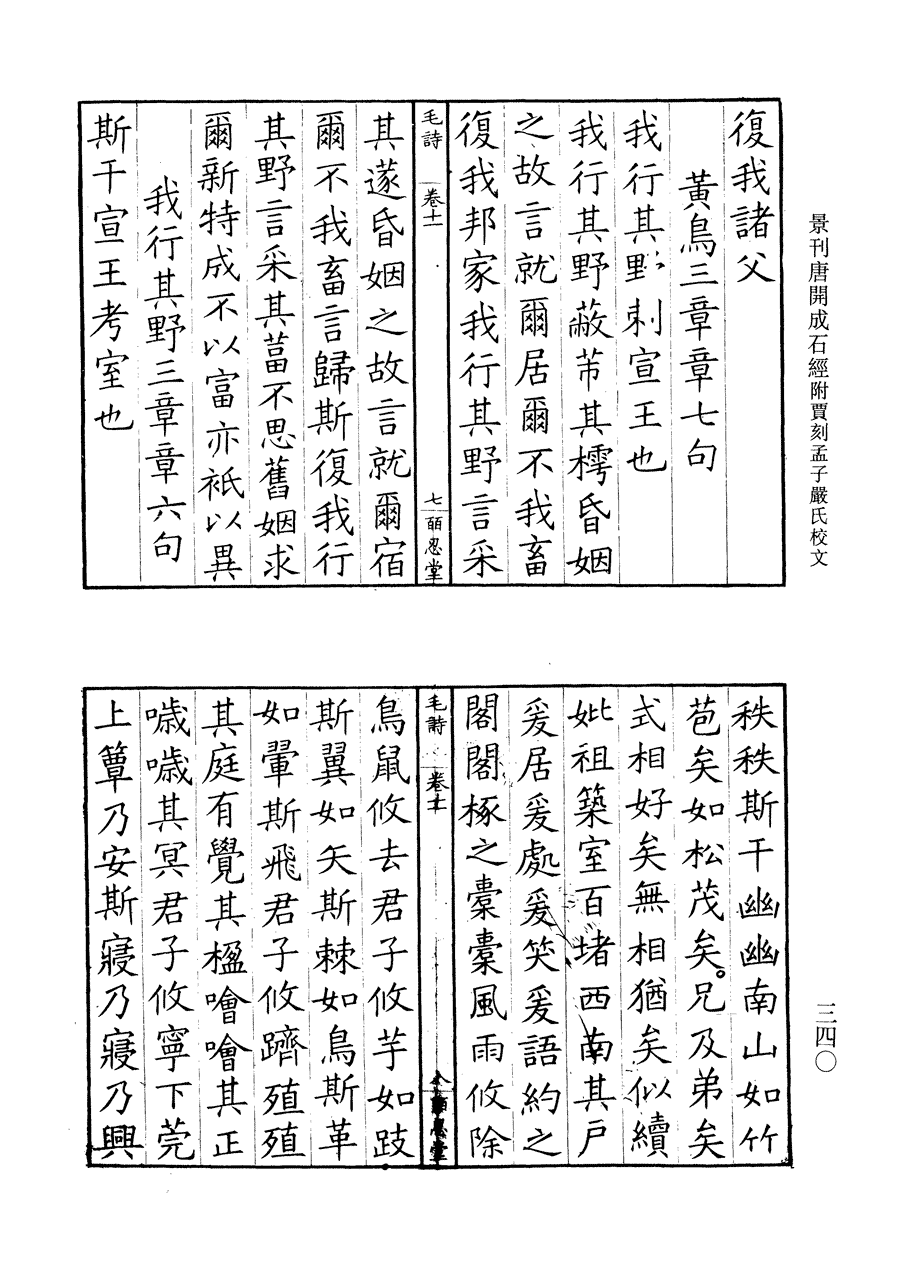 景刊唐開成石經附賈刻孟子嚴氏校文
復我諸父
黃鳥三章章七句
我行其野刺宣王也
我行其野蔽芾其樗昏姻
之故言就爾居爾不我畜
復我邦家我行其野言采
毛詩 卷十一 七 皕忍堂
其蓫昏姻之故言就爾宿
爾不我畜言歸斯復我行
其野言采其葍不思舊姻求
爾新特成不以富亦祇以異
我行其野三章章六句
斯干宣王考室也
秩秩斯干幽幽南山如竹
苞矣如松茂矣。兄及弟矣
式相好矣無相猶矣似續
妣祖築室百堵西南其戶
爰居爰處爰笑爰語約之
閣閣椓之橐橐風雨攸除
毛詩 卷十一 八 皕忍堂
鳥鼠攸去君子攸芋如跂
斯翼如矢斯棘如鳥斯革
如翬斯飛君子攸躋殖殖
其庭有覺其楹噲噲其正
噦噦其冥君子攸寧下莞
上簟乃安斯寢乃寢乃興
三四〇